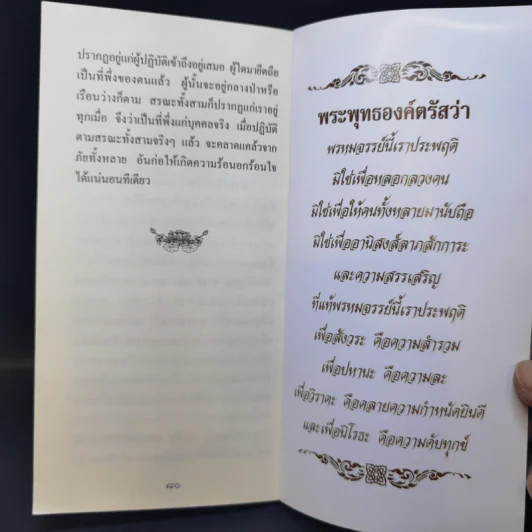 ปรากฏอยู่แก่ผู้ปฏิบัติเข้าถึงอยู่เสมอ ผู้ใดมายึดถือ
เป็นที่พึ่งของตนแล้ว ผู้นั้นจะอยู่กลางป่าหรือ
เรือนว่างก็ตาม สรณะทั้งสามก็ปรากฏแก่เราอยู่
ทุกเมื่อ จึงว่าเป็นที่พึ่งแก่บุคคลจริง เมื่อปฏิบัติ
ตามสรณะทั้งสามจริงๆ แล้ว จะคลาดแคล้วจาก
ภัยทั้งหลาย อันก่อให้เกิดความร้อนอกร้อนใจ
ได้แน่นอนทีเดียว
๘๐
พระพุทธองค์ตรัสว่า
พรหมจรรย์นี้เราประพฤติ
มิใช่เพื่อหลอกลวงคน
มิใช่เพื่อให้คนทั้งหลายมานับถือ
มิใช่เพื่ออานิสงส์ลาภสักการะ
และความสรรเสริญ
ที่แท้พรหมจรรย์นี้เราประพฤติ
เพื่อสังวระ คือความสำรวม
เพื่อปหานะ คือความละ
เพื่อวิราคะ คือคลายความกำหนัดยินดี
และเพื่อนิโรธะ คือความดับทุกข์